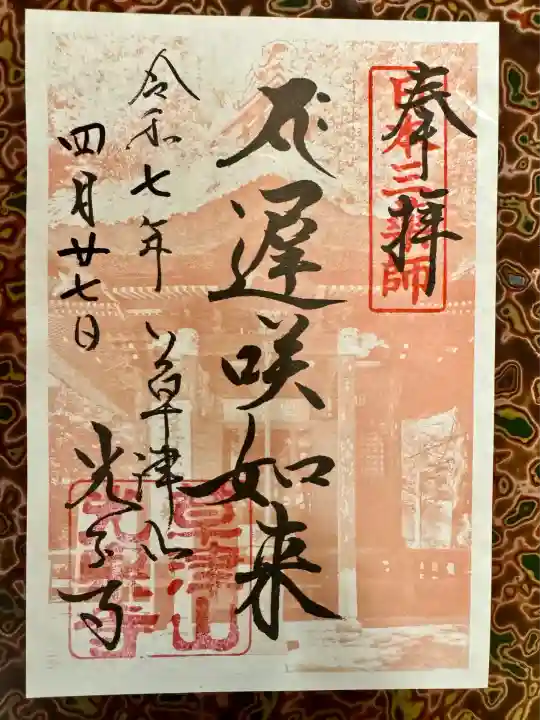 奉拝
日本三薬師
遅咲如来
令和七年
四月廿七日
草津山
光泉寺
草津山
光泉寺